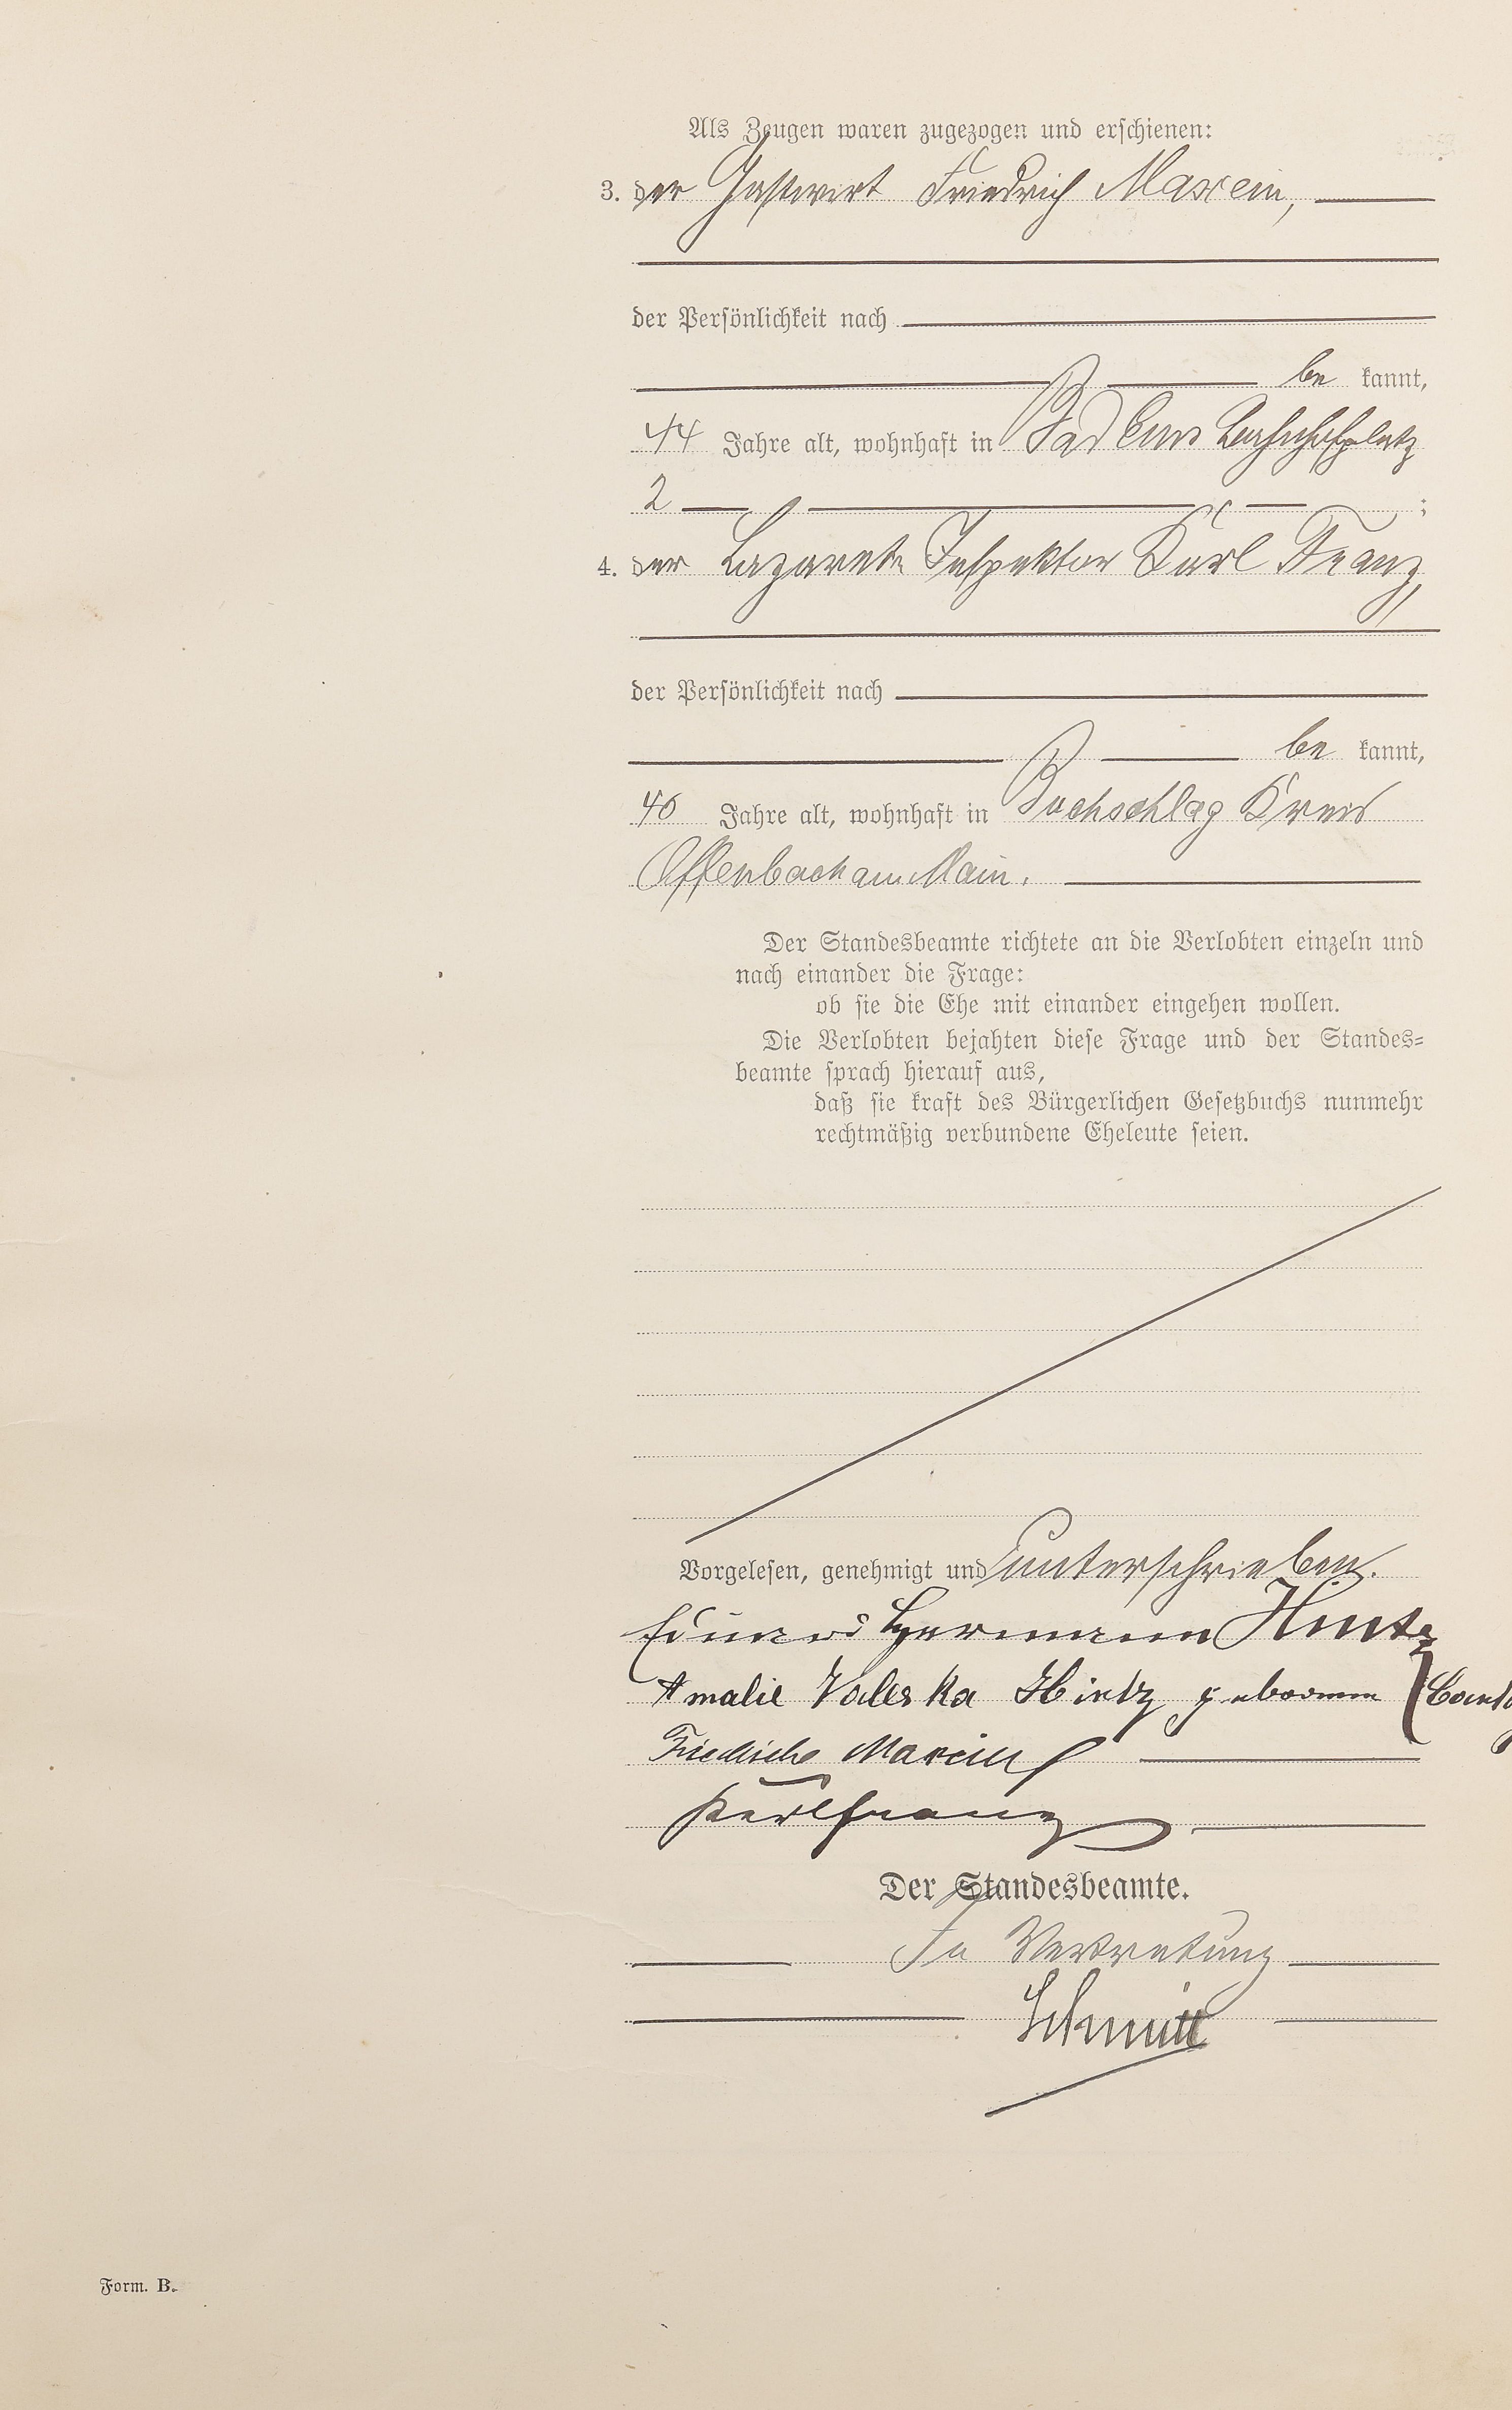 Als Zeugen waren zugezogen und erschienen:
3. der Gastwirt Friedrich Maxein,
der Persönlichkeit nach
be kannt,
44 Jahre alt, wohnhaft in Bad Ems Bahnhofplatz
2 ;
4. der Lazarett Inspektor Karl Franz,
der Persönlichkeit nach
be kannt,
46 Jahre alt, wohnhaft in Buchschlag Kreis
Offenbach am Main.
Der Standesbeamte richtete an die Verlobten einzeln und
nach einander die Frage:
ob sie die Ehe mit einander eingehen wollen.
Die Verlobten bejahten diese Frage und der Standes-
beamte sprach hierauf aus,
daß sie kraft des Bürgerlichen Gesetzbuchs nunmehr
rechtmäßig verbundene Eheleute seien.
Vorgelesen, genehmigt und unterschrieben.
Eduard Hermann Hintz
Amalie Valeska Hintz geborenen
Friedrich Maxein
Karl Franz
Der Standesbeamte.
In Vertretung
Schmitt
Form. B.